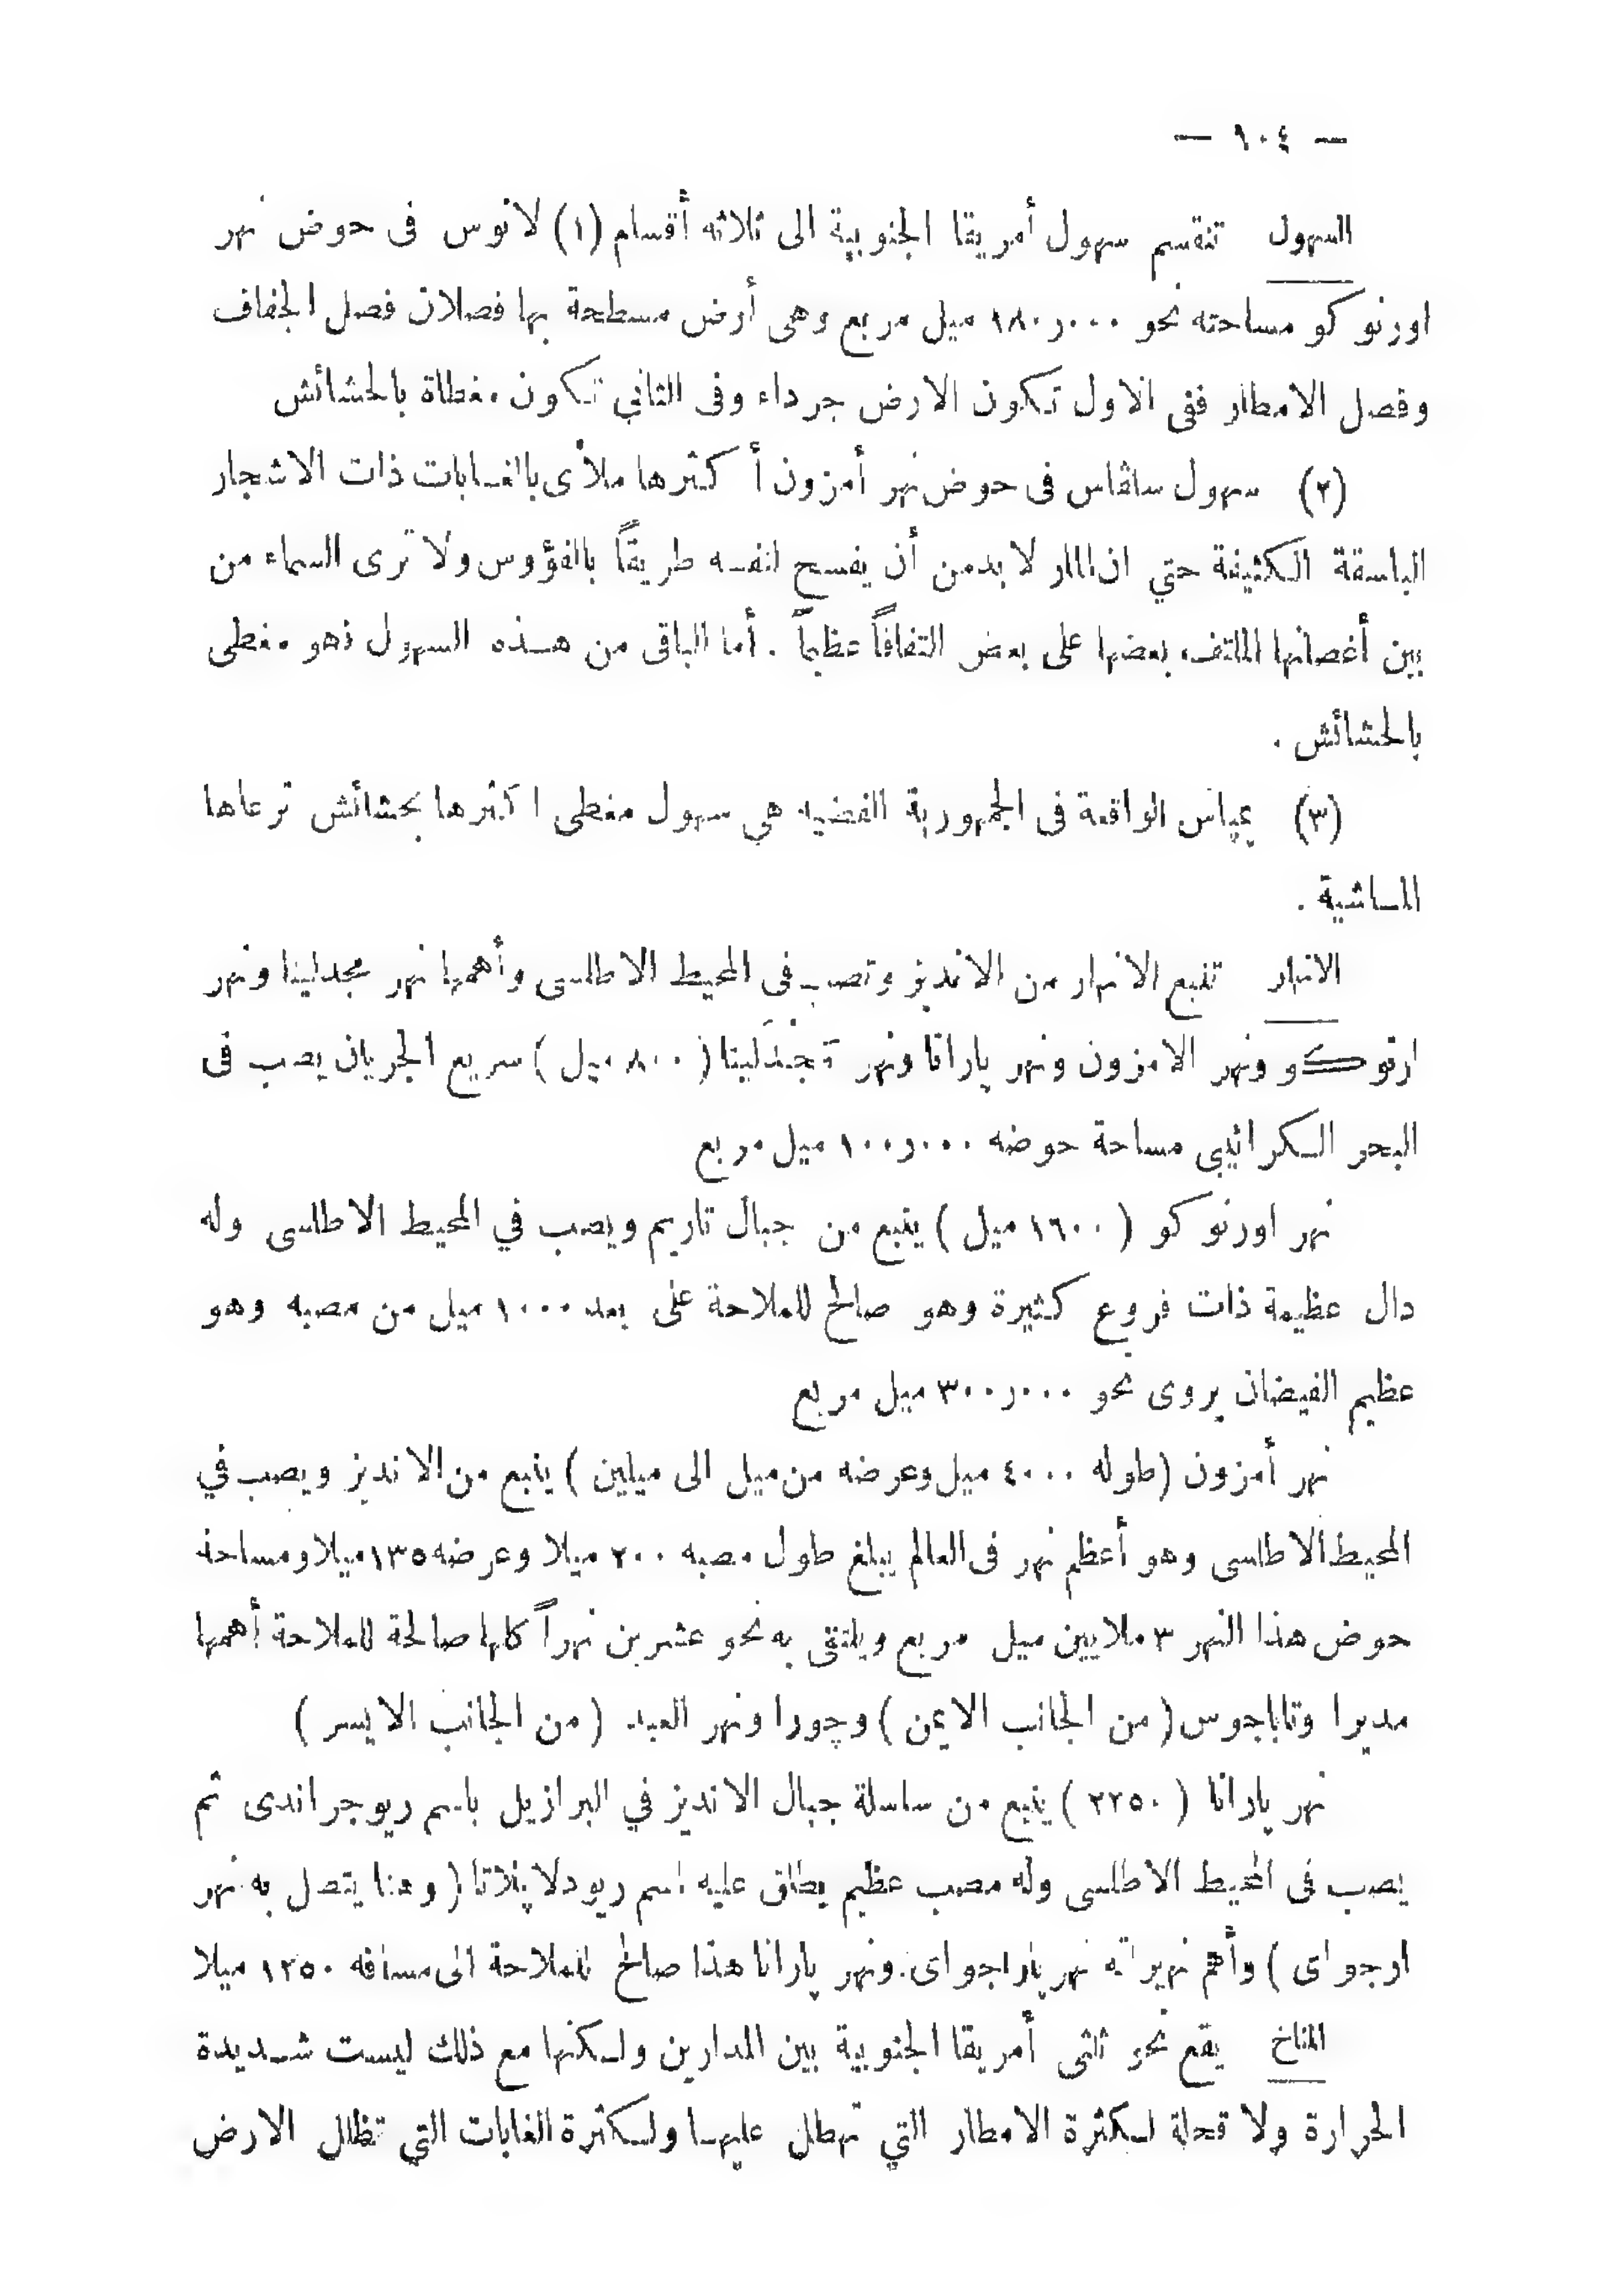 — ٩٠٤ —
السهول تنقسم سهول أمريقا الجنوبية الى ثلاثه أقسام (١) لانوس فى حوض نهر
اورنوكو مساحته نحو ١٨٠٫٠٠٠ ميل مربع وهى أرض مسطحة بها فصلان فصل الجفاف
وفصل الامطار ففى الاول تكون الارض جرداء وفى الثاني تكون مغطاة بالحشائش
(٢) سهول سلفاس فى حوض نهر أمزون أكثرها ملأى بالغابات ذات الاشجار
الباسقة الكثيفة حتي ان المار لا بدمن أن يفسح لنفسه طريقاً بالفؤوس ولا ترى السماء من
بين أغصانها الملتف بعضها على بعض التفافاً عظيماً . أما الباقى من هذه السهول فهو مغطى
بالحشائش .
(٣) پمپاس الواقعة فى الجمهورية الفضيه هي سهول مغطى اكثرها بحشائش ترعاها
الماشية .
الانهار تنبع الانهار من الانديز وتصب فى المحيط الاطلسى وأهمها نهر مجدلينا ونهر
ارنوكو ونهر الامزون ونهر پارانا ونهر مَجْدَلينا ( ٨٠٠ ميل ) سريع الجريان يصب فى
البحر الكرائيبى مساحة حوضه ١٠٠٫٠٠٠ ميل مربع
نهر اورنوكو ( ١٦٠٠ ميل ) ينبع من جبال تاريم ويصب في المحيط الاطلسى وله
دال عظيمة ذات فروع كثيرة وهو صالح للملاحة على بعد ١٠٠٠ ميل من مصبه وهو
عظيم الفيضان يروى نحو ٣٠٠٫٠٠٠ ميل مربع
نهر أمزون (طوله ٤٠٠٠ ميل وعرضه من ميل الى ميلين ) ينبع من الانديز ويصب في
المحيط الاطلسى وهو أعظم نهر فى العالم يبلغ طول مصبه ٢٠٠ ميلا وعرضه ١٣٥ ميلا ومساحة
حوض هذا النهر ٣ ملايين ميل مربع ويلتقى به نحو عشرين نهراً كلها صالحة للملاحة أهمها
مديرا وتاباجوس ( من الجانب الايمن ) وچورا ونهر العبد ( من الجانب الايسر )
نهر پارانا ( ٢٢٥٠ ) ينبع من سلسلة جبال الانديز في البرازيل باسم ريوجراندى ثم
يصب فى المحيط الاطلسى وله مصب عظيم يطلق عليه اسم ريودلاپلاتا ( وهنا يتصل به نهر
ارجواى ) وأهم نهيراته نهر پاراجواى. ونهر پارانا هذا صالح للملاحة الى مسافه ١٢٥٠ ميلا
المناخ يقع نحو ثلثى أمريقا الجنوبية بين المدارين ولكنها مع ذلك ليست شديدة
الحرارة ولا قحلة لكثرة الامطار التي تهطل عليها ولكثرة الغابات التي تظلل الارض